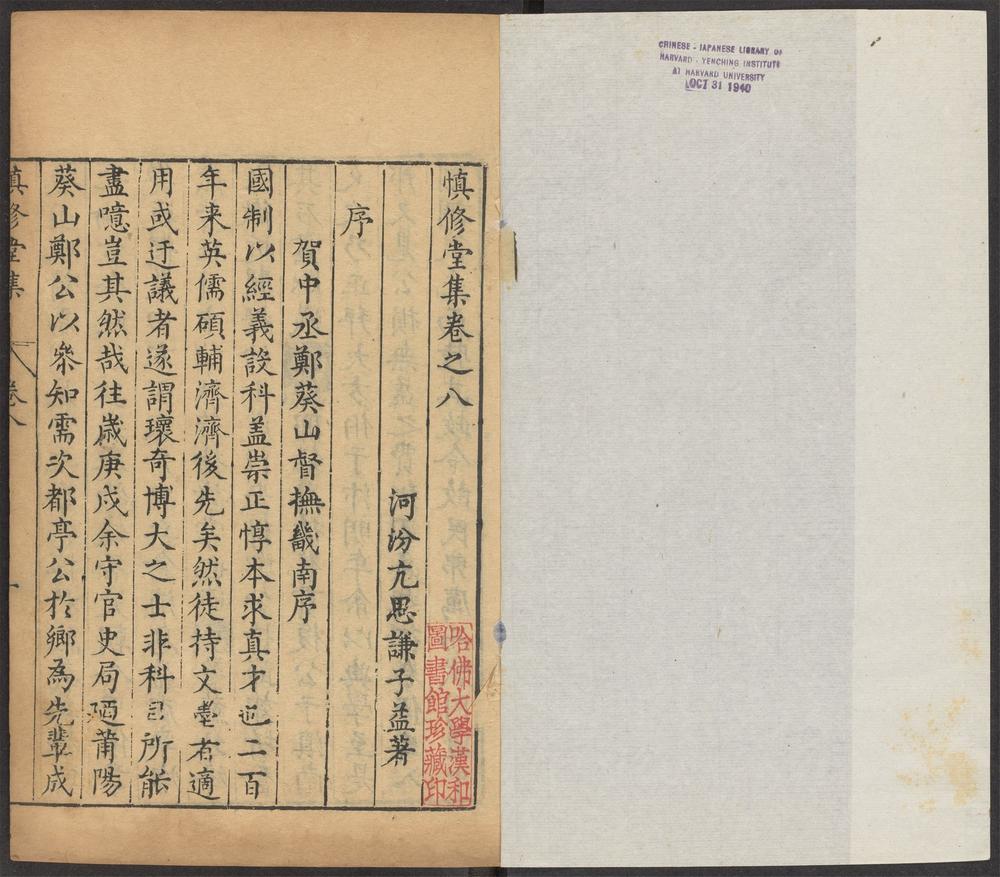 CHINESE - JAPANESE LIBRARY OF
HARVARD - YENCHING INSTITUTE
AT HARVARD UNIVERSITY
OCT 31 1940
慎修堂集卷之八
河汾亢思謙子益著
序
賀中丞鄭葵山督撫畿南序
國制以經義設科盖崇正惇本求真才也二百
年来英儒碩輔濟濟後先矣然徒持文墨者適
用或迂議者遂謂瓌奇博大之士非科目所能
盡噫豈其然哉往歲庚戌余守官史局莆陽
葵山鄭公以叅知需次都亭公扵鄉為先輩成
慎修堂集
卷八
一
哈佛大學漢和
圖書館珍藏印